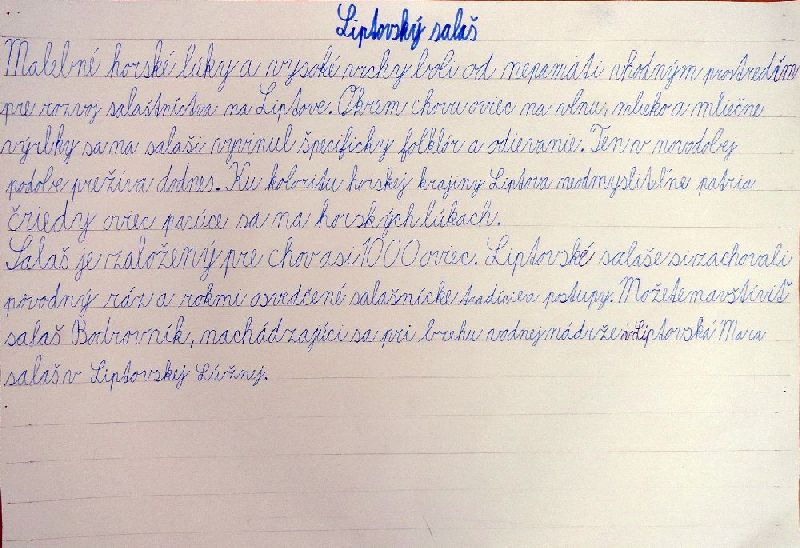 Liptovský salaš
Malebné horské lúky a vysoké vrchy boli od nepamäti vhodným prostredím
pre rozvoj salašníctva na Liptove. Okrem chovu oviec na vlnu, mlieko a mliečne
výrobky sa na salaši vyvinul špecifický folklór a odievanie. Ten v novodobej
podobe prežíva dodnes. Ku koloritu horskej krajiny Liptova neodmysliteľne patria
čriedy oviec pasúce sa na horských lúkach.
Salaš je založený pre chov asi 1000 oviec. Liptovské salaše si zachovali
pôvodný ráz a rokmi osvedčené salašnícke tradície a postupy. Môžete navštíviť
salaš Bobrovník, nachádzajúci sa pri brehu vodnej nádrže Liptovská Mara
salaš v Liptovskej Lúžnej.